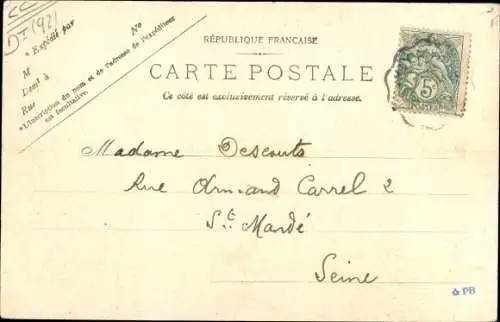 DI (92)
* Expédié par
M
Demt à
Rue
No
* L'inscription du nom et de l'adresse de l'expéditeur
est facultative.
RÉPUBLIQUE FRANÇAISE
CARTE POSTALE
Ce côté est exclusivement réservé à l'adresse.
5
Madame Descouts
Rue Armand Carrel 2
St Mandé
Seine
PB